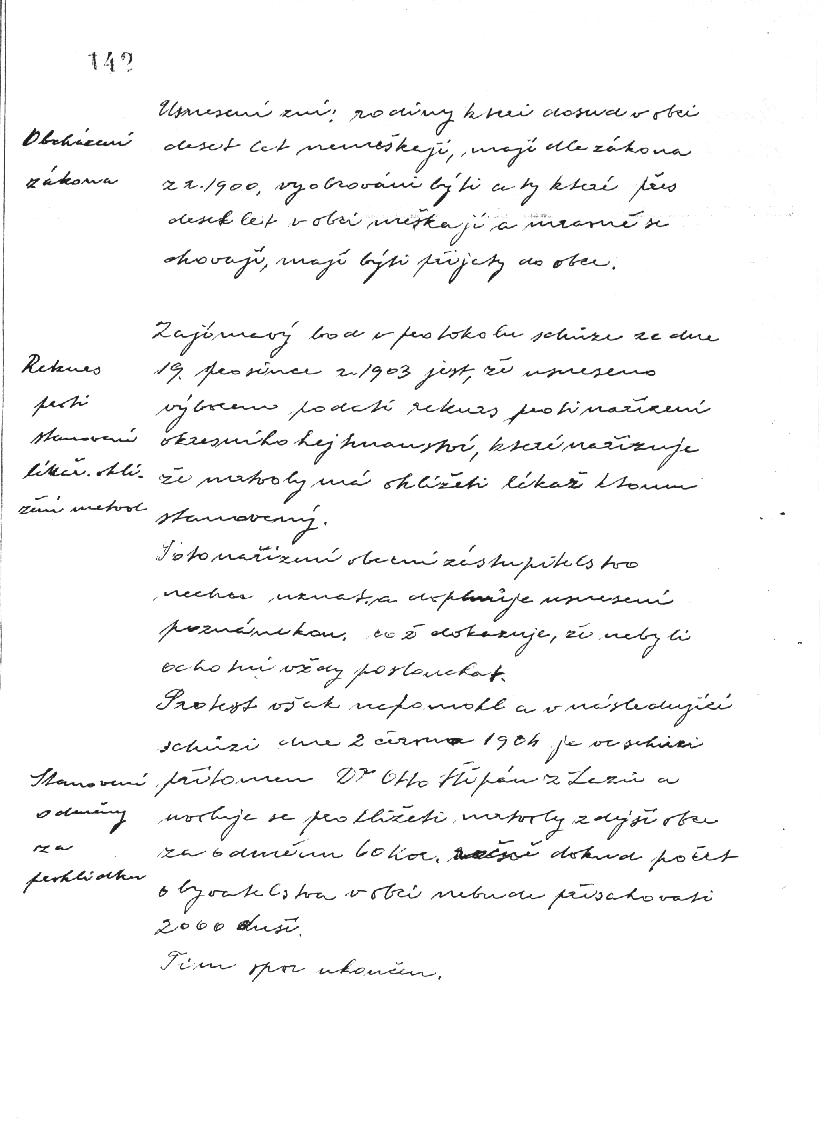 142
Usnesení zní: rodiny kteří dosud v obci
Obcházení
deset let nemeškají, mají dle zákona
zákona
z r. 1900, vyobcováni býti a ty které přes
deset let v obci meškají a mravně se
chovají, mají býti přijaty do obce.
Zajímavý bod v protokolu schůze ze dne
Rekurs
19. prosince r. 1903 jest, že usneseno
proti
výborem podati rekurs proti nařízení
stanovení
okresního hejtmanství, které nařizuje
lékař. ohlí-
že mrtvoly má ohlížeti lékař k tomu
žení mrtvol
stanovený.
Toto nařízení obecní zástupitelstvo
nechce uznat, a doplňuje usnesení
poznámkou, což dokazuje, že nebyli
ochotni vždy poslouchat.
Protest však nepomohl a v následující
schůzi dne 2 června 1904 je ve schůzi
Stanovení
přítomen Dr Otto Štěpán z a
odměny
uvoluje se prohlížeti mrtvoly zdejší obce
za
za odměnu 60 kor. ročně dokud počet
prohlídku
obyvatelstva v obci nebude přesahovati
2000 duší.
Tím spor ukončen.